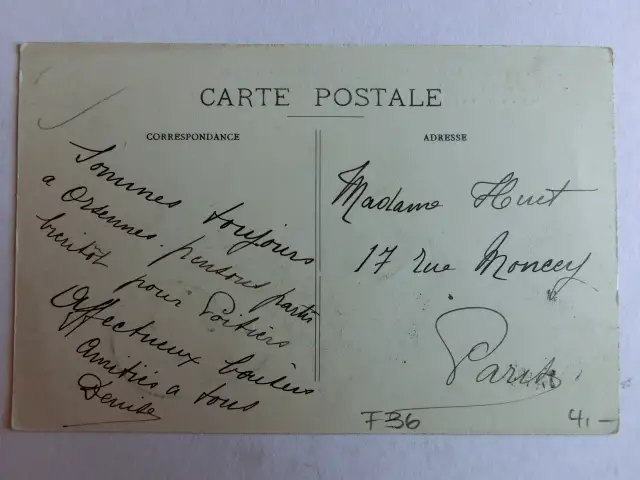 CARTE POSTALE
CORRESPONDANCE
ADRESSE
Sommes toujours
a Orsennes. pensons partir
bientôt pour Poitiers
Affectueux baisers
Amitiés a tous
Denise
Madame Huet
17 rue Moncey
Paris
F36
4,-